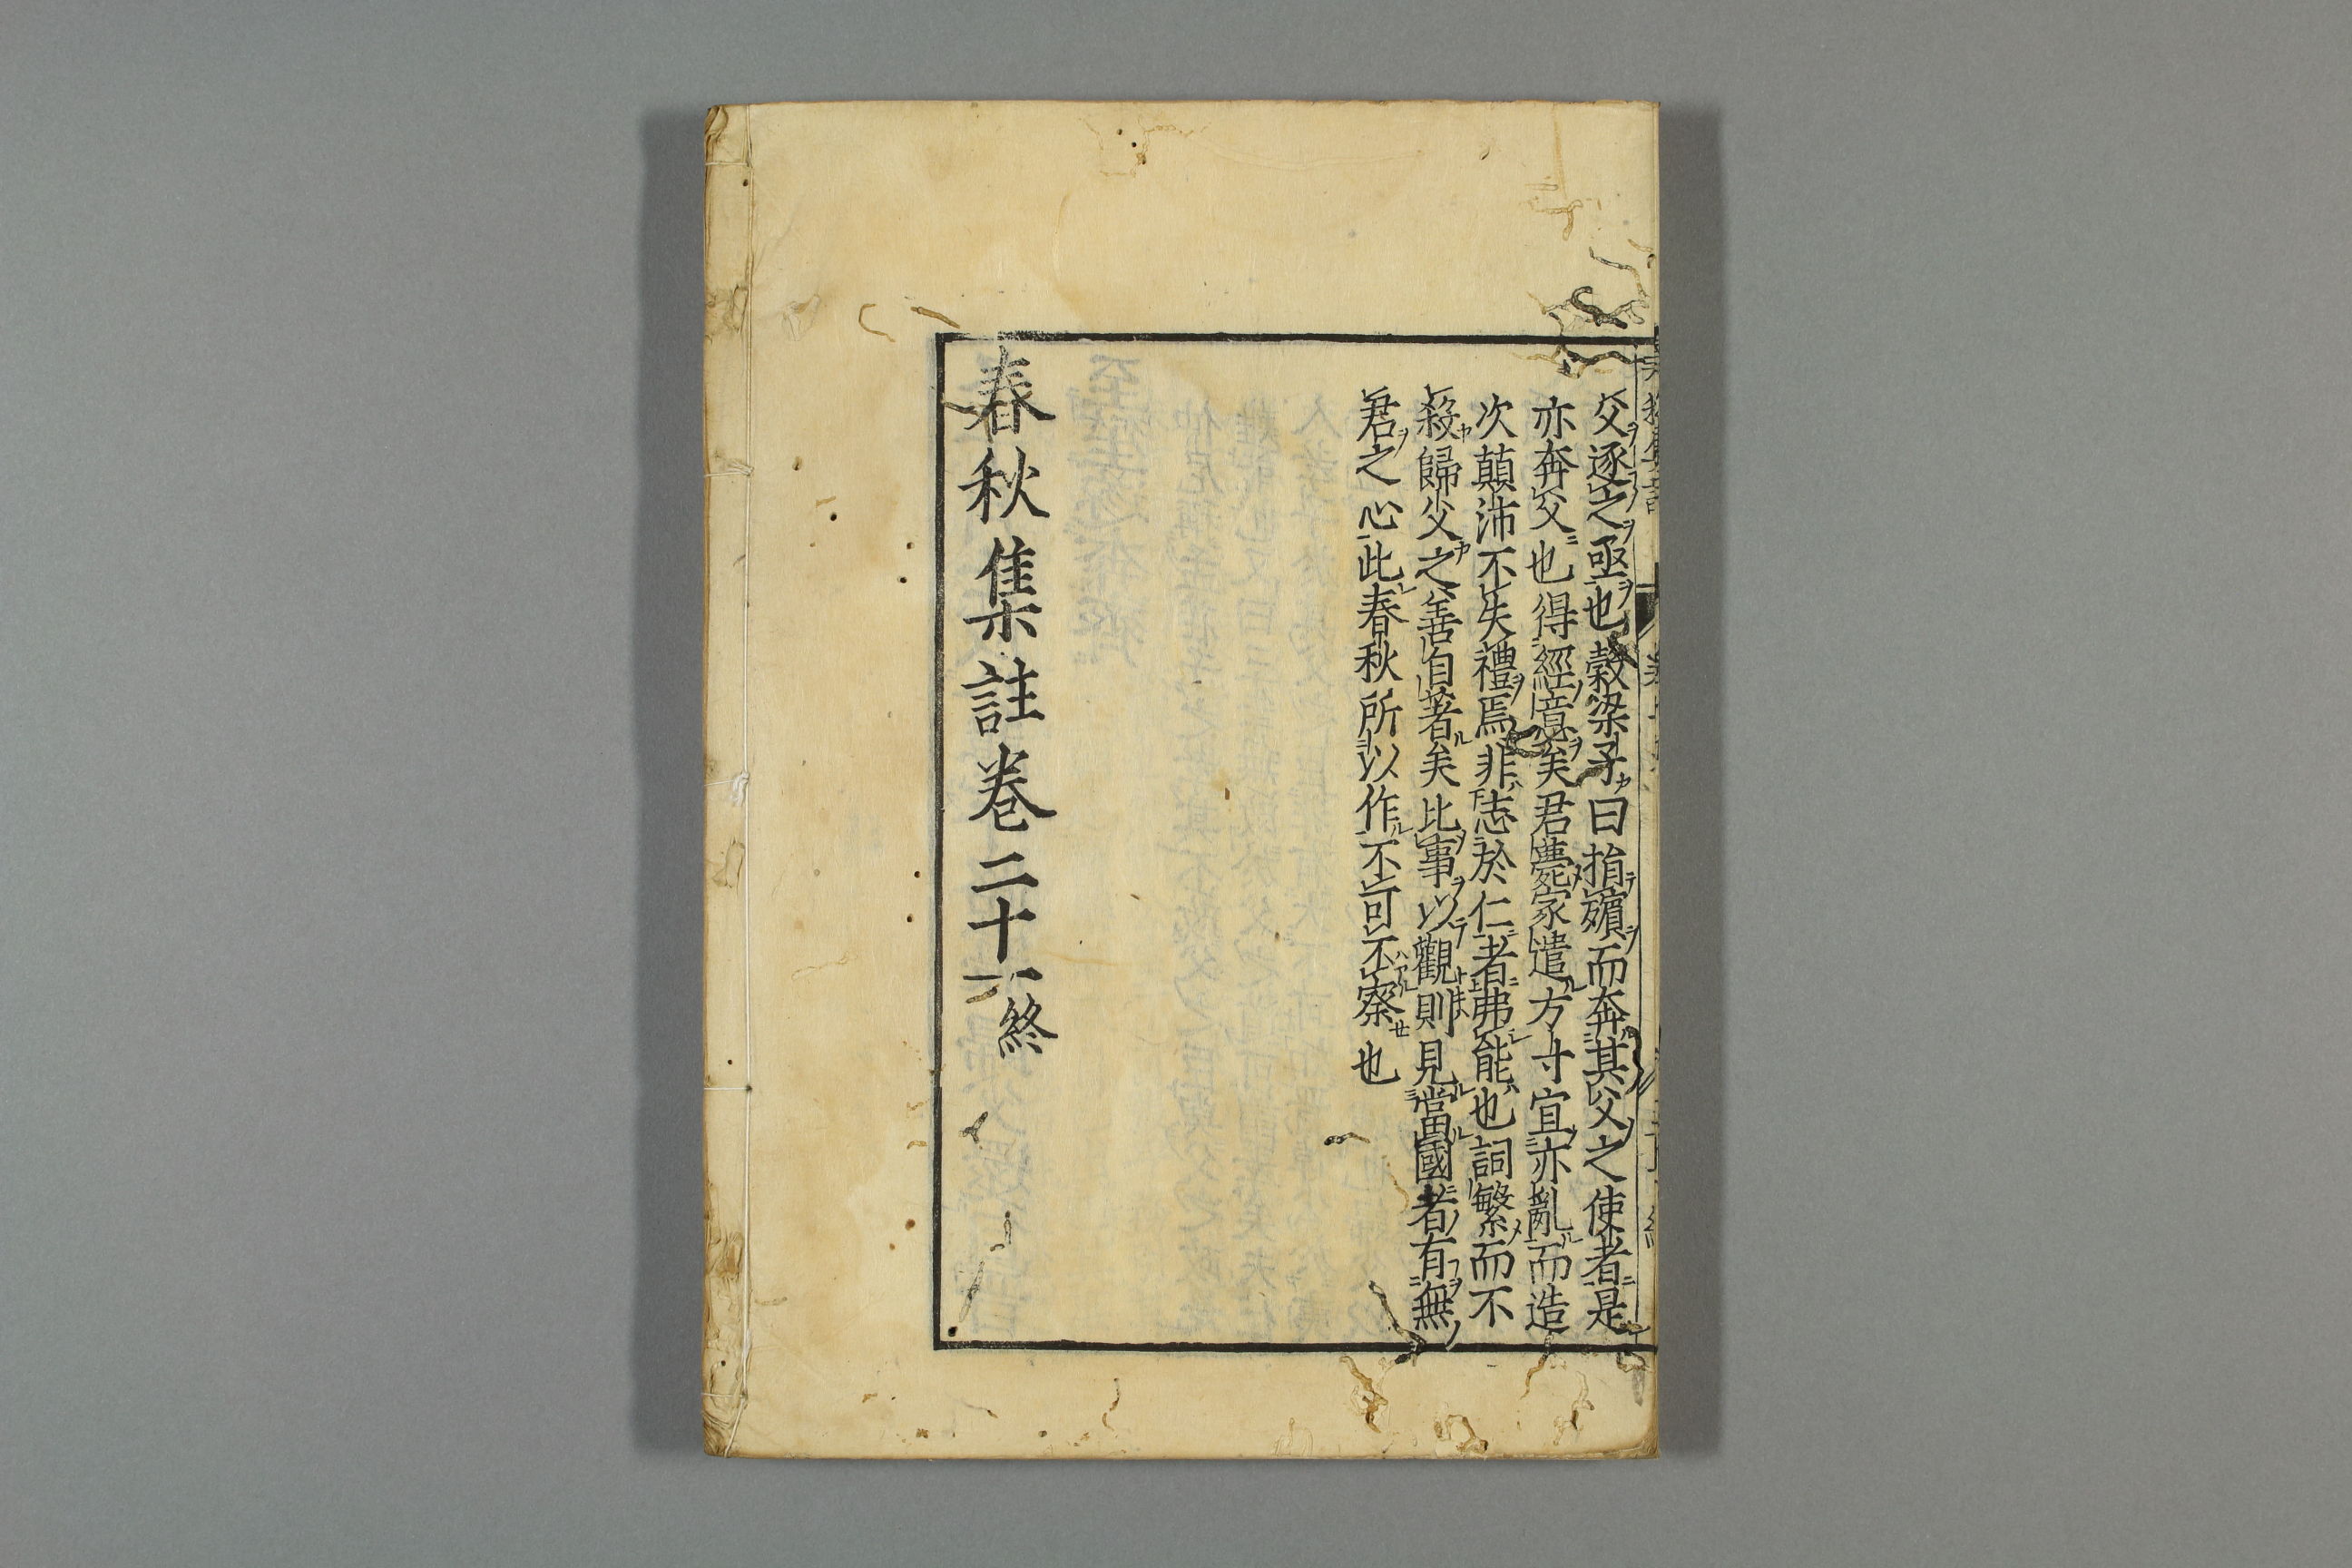 父逐之亟也穀梁子曰捐殯而奔其父之使者是
亦奔父也得經意矣君薨家遣方寸宜亦亂而造
次顛沛不失禮焉非志於仁者弗能也詞繁而不
殺歸父之善自著矣比事以觀則見當國者有無
君之心此春秋所以作不可不察也
春秋集註卷二十一終